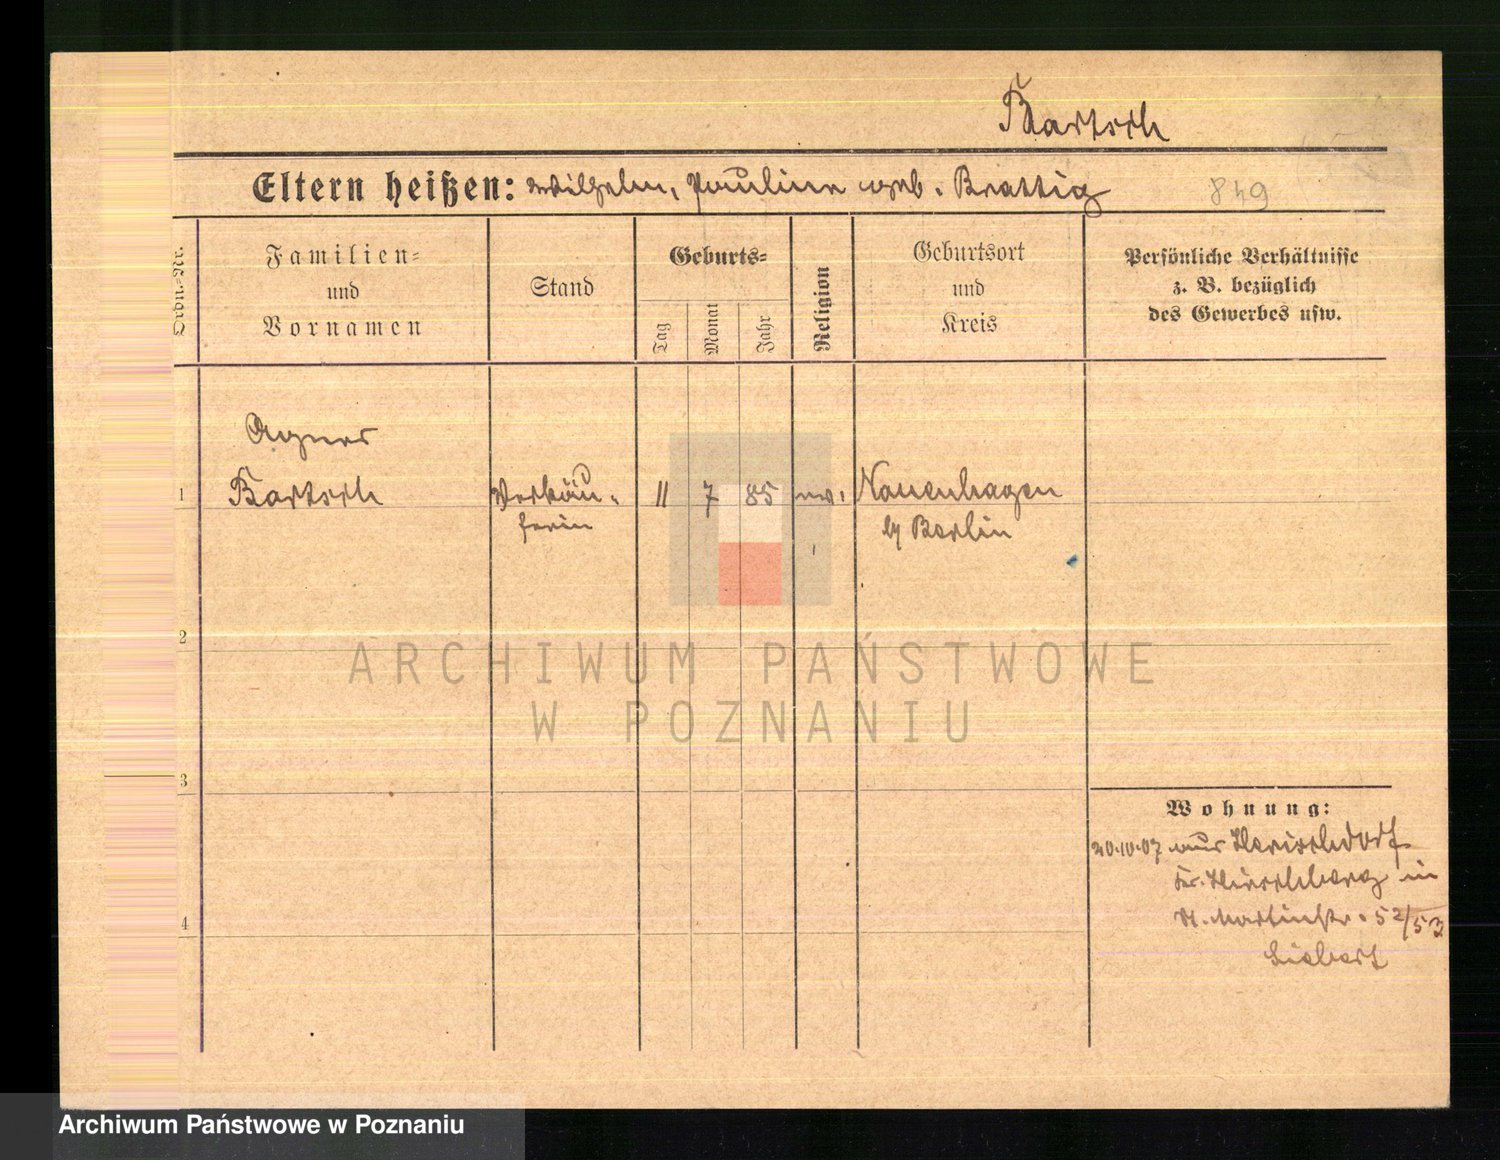 Bartsch
Eltern heißen: Wilhelm, Pauline geb. Brattig
849
Ordn.-Nr.
Familien-
und
Vornamen
Stand
Geburts-
Tag
Monat
Jahr
Religion
Geburtsort
und
Kreis
Persönliche Verhältnisse
z. B. bezüglich
des Gewerbes usw.
Agnes
1 Bartsch Verkäu- 11 7 85 ev. Nauenhagen
ferin b/ Berlin
2
ARCHIWUM PAŃSTWOWE
W POZNANIU
3
Wohnung:
20.10.07 aus Herischdorf
Kr. Hirschberg in
St. Martinstr. 52/53
4
Siebert
Archiwum Państwowe w Poznaniu